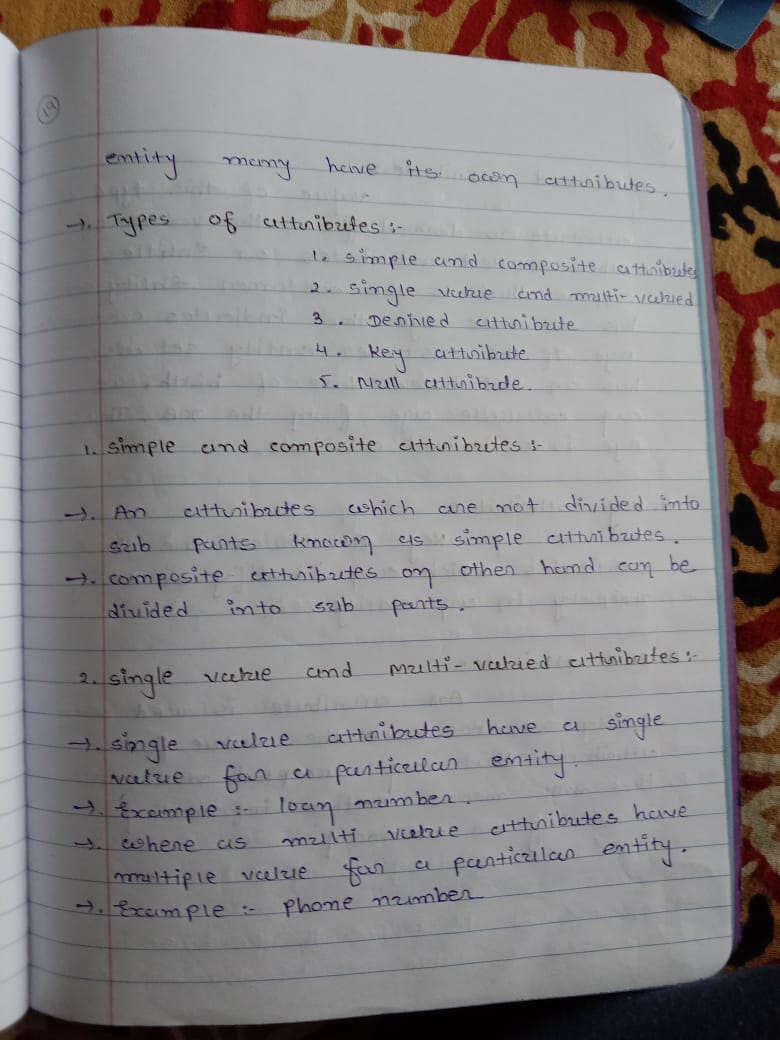 19
entity many have its own attributes.
→. Types of attributes :-
1. simple and composite attributes
2. single value and multi-valued
3. Derived attribute
4. key attribute
5. Null attribute.
1. simple and composite attributes :-
→. An attributes which are not divided into
sub parts known as simple attributes.
→. composite attributes on other hand can be
divided into sub parts.
2. single value and multi-valued attributes :-
→. single value attributes have a single
value for a particular entity.
→. Example :- loan number.
→. where as multi value attributes have
multiple value for a particular entity.
→. Example :- phone number